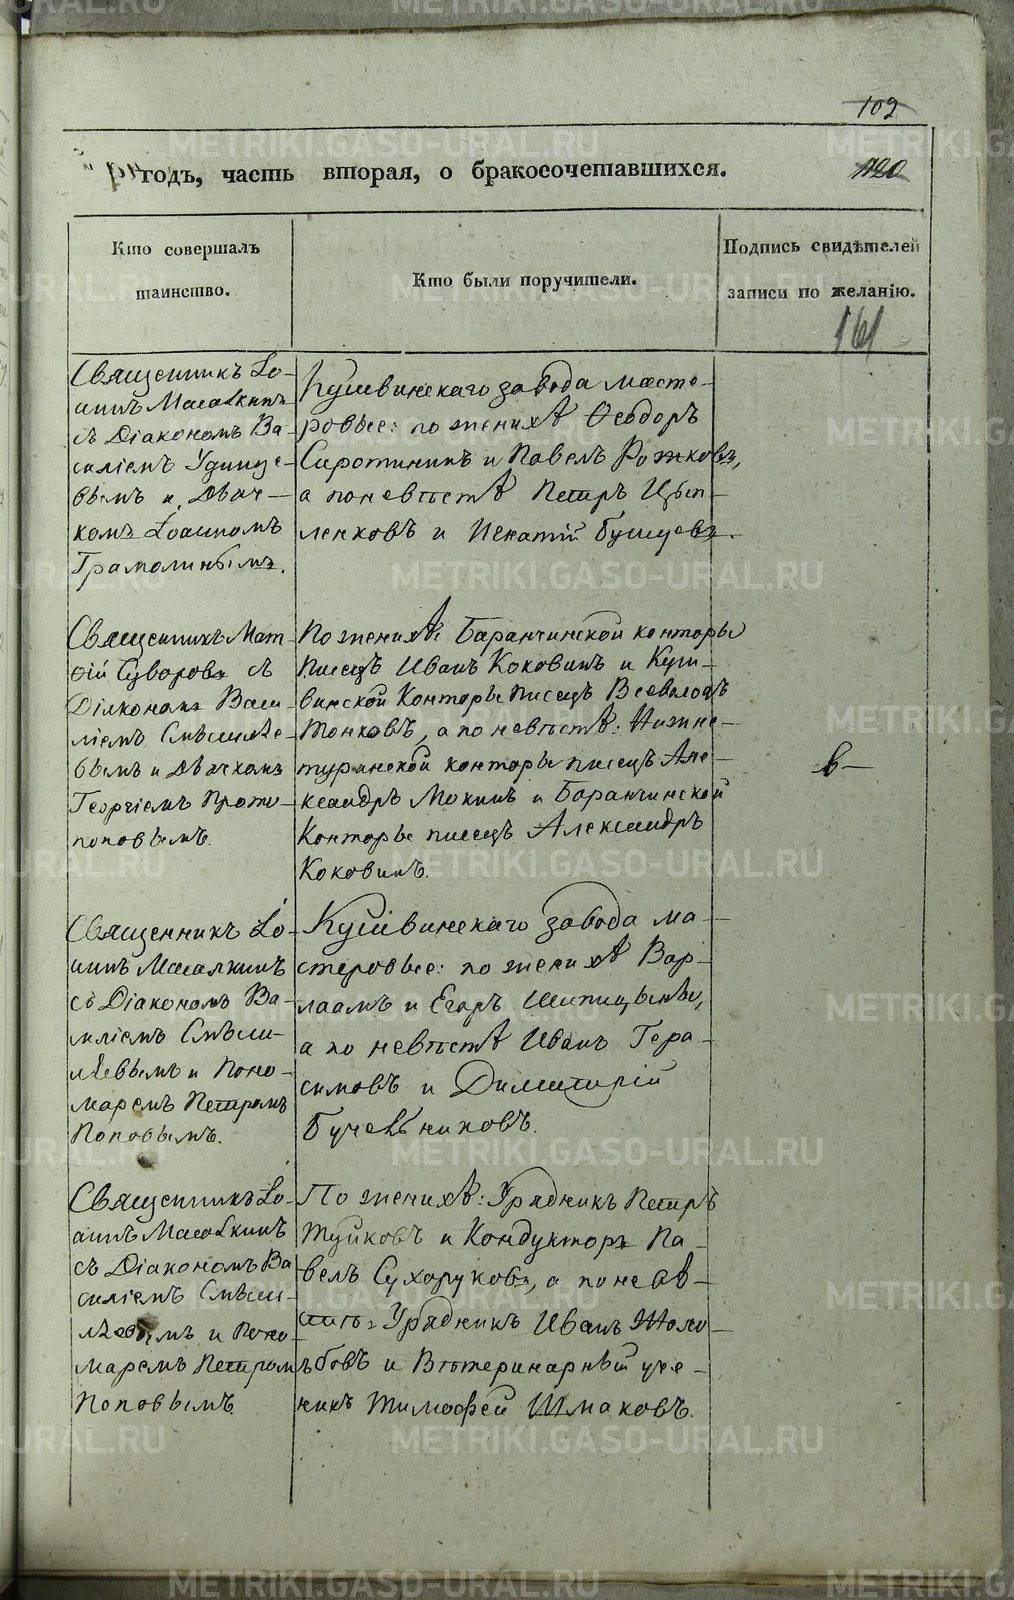 102
годъ, часть вторая, о бракосочетавшихся.
120
Кто совершалъ
таинство.
Кто были поручители.
Подпись свидѣтелей
записи по желанію.
161
Священникъ Іо-
аннъ Масалкинъ
съ Діакономъ Ва-
силіемъ Удинце-
вымъ и Дьяч-
комъ Іоанномъ
Грамолинымъ.
Кушвинскаго завода масте-
ровые: по женихѣ Ѳеодоръ
Сиротининъ и Павелъ Рожковъ,
а по невѣстѣ Петръ Цып-
ленковъ и Игнатій Бушуевъ.
Священникъ Мат-
ѳій Суворовъ съ
Діакономъ Васи-
ліемъ Смышляе-
вымъ и Дьячкомъ
Георгіемъ Прото-
поповымъ.
По женихѣ: Баранчинской конторы
писецъ Иванъ Коковинъ и Куш-
винской Конторы писецъ Всеволодъ
Тонковъ, а по невѣстѣ: Нижне-
туринской конторы писецъ Але-
ксандръ Мокинъ и Баранчинской
Конторы писецъ Александръ
Коковинъ.
Священникъ Іо-
аннъ Масалкинъ
съ Діакономъ Ва-
силіемъ Смышл-
яевымъ и Поно-
маремъ Петромъ
Поповымъ.
Кушвинскаго завода ма-
стеровые: по женихѣ Вар-
лаамъ и Егоръ Шипицыны,
а по невѣстѣ Иванъ Гера-
симовъ и Димитрій
Бучельниковъ.
Священникъ Іо-
аннъ Масалкинъ
съ Діакономъ Ва
силіемъ Смышл-
яевымъ и Поно-
маремъ Петромъ
Поповымъ
По женихѣ: Урядникъ Петръ
Туйковъ и Кондукторъ Па-
велъ Сухоруковъ, а по невѣ-
стѣ: Урядникъ Иванъ Жоло-
бовъ и Ветеринарный уче-
никъ Тимофей Шмаковъ.
METRIKI.GASO-URAL.RU